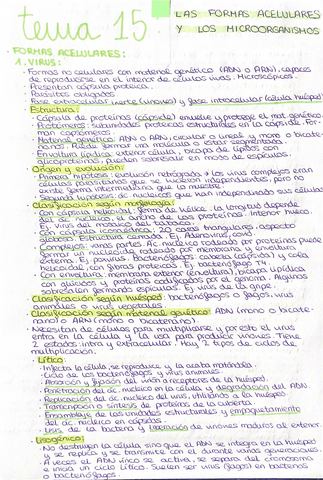 tema 15
LAS FORMAS ACELULARES
Y LOS MICROORGANISMOS
· FORMAS ACELULARES:
1. VIRUS:
· Formas no celulares con material genético (ADN o ARN), capaces
de reproducirse en el interior de células vivas. Microscópicos.
· Presentan cápsula proteica.
· Parásitos obligados.
· Fase extracelular inerte (viriones) y fase intracelular (célula huésped)
Estructura:
· Cápsula de proteínas (cápside) envuelve y protege el mat. genético.
· Protómeros: subunidades proteicas estructurales en la cápsida. For-
man capsómeros.
· Material genético: ADN o ARN, circular o lineal y mono o bicate-
nario. Puede formar una molécula o estar segmentada.
· Envoltura lipídica externa célula, bicapa de lípidos con
glicoproteínas. Pueden sobresalir en modo de espículas.
Origen y evolución:
· Primera hipótesis (evolución retrógrada) los virus complejos eran
células parasitadas que se volvieron independientes, pero no
existe forma intermediaria que la muestre.
· Segunda hipótesis: ác. nucleicos que han independizado sus células
Clasificación según morfología:
· Con cápsula helicoidal: forma de hélice. La longitud depende
del ác. nucleico, el ancho de las proteínas. Interior hueco.
Ej. virus del mosaico del tabaco.
· Con cápsula icosaédrica: 20 caras triangulares, aspecto
globoso. Estructura cerrada. Ej. Adenovirus.
· Complejos: varias partes. Ác nucleico rodeado por proteínas puede
formar un nucleoide rodeado por membrana y envoltura
externa. Ej. poxvirus. Bacteriófagos: cabeza (cápsula) y cola
helicoidal, con fibras proteicas. Ej. bacteriófago T4.
· Con envuelta: membrana exterior (envoltura), bicapa lipídica
con glúcidos y proteínas codificadas por el genoma. Algunas
sobresalen formando espículas. Ej. virus de la gripe.
Clasificación según huésped: bacteriófagos o fagos, virus
animales o virus vegetales.
Clasificación según material genético: ADN (mono o bicate-
nario) o ARN (mono o bicatenario).
· Necesitan de células para multiplicarse y por esto el virus
entra en la célula y la usa para producir viriones. Tiene
2 estados, intra y extracelular. Hay 2 tipos de ciclos de
multiplicación:
· Lítico:
· Infecta la célula, se reproduce y la acaba matándola.
· Ciclo de los bacteriófagos y virus animales.
· Absorción y fijación del virión a receptores de la huésped.
· Penetración del ác. nucleico en la célula y degradación del ADN.
· Replicación del ác. nucleico del virus, utilizando a la huésped
· Transcripción o síntesis de proteínas de la cubierta.
· Ensamblaje de las unidades estructurales y empaquetamiento
del ác. nucleico en cápsulas.
· Lisis de la bacteria y liberación de viriones maduros al exterior.
· Lisogénico:
· No destruyen la célula sino que el ADN se integra en la huésped
y se replica y se transmite con él durante varias generaciones.
· A veces el ADN vírico se activa, se separa del cromosoma
e inicia un ciclo lítico. Suelen ser virus (fagos) en bacterias
o bacteriófagos.